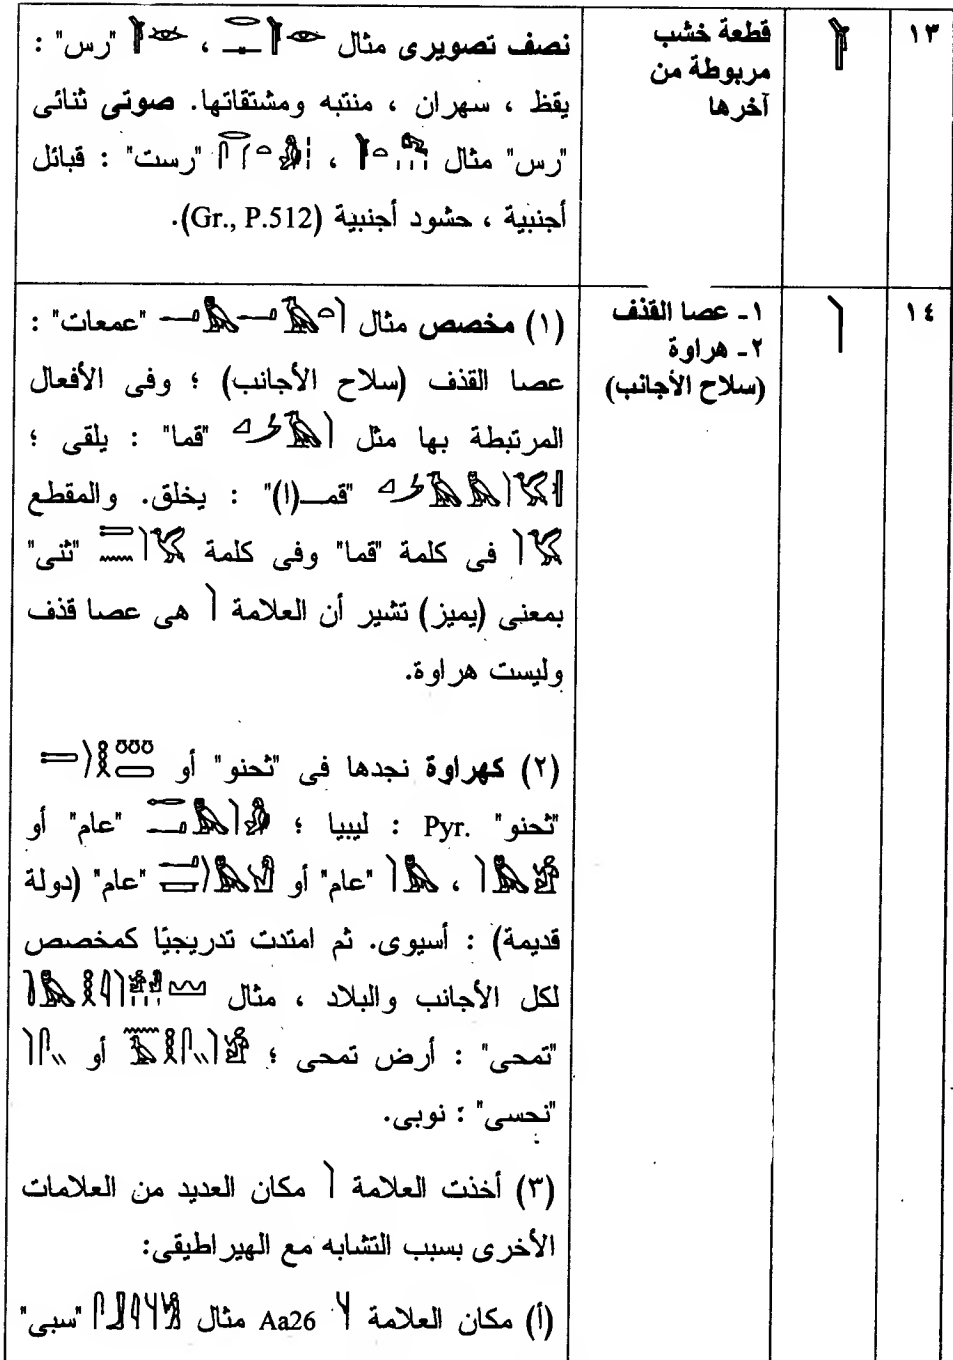 ١٣
قطعة خشب
مربوطة من
آخرها
نصف تصويرى مثال ، "رس" :
يقظ ، سهران ، منتبه ومشتقاتها. صوتى ثنائى
"رس" مثال ، "رست" : قبائل
أجنبية ، حشود أجنبية (Gr., P.512).
١٤
١ـ عصا القذف
٢ـ هراوة
(سلاح الأجانب)
(١) مخصص مثال "عمعات" :
عصا القذف (سلاح الأجانب) ؛ وفى الأفعال
المرتبطة بها مثل "قما" : يلقى ؛
"قمـــ(ا)" : يخلق. والمقطع
فى كلمة "قما" وفى كلمة "ثنى"
بمعنى (يميز) تشير أن العلامة هى عصا قذف
وليست هراوة.
(٢) كهراوة نجدها فى "ثحنو" أو
"ثحنو" Pyr. : ليبيا ؛ "عام" أو
، "عام" أو "عام" (دولة
قديمة) : أسيوى. ثم امتدت تدريجيًا كمخصص
لكل الأجانب والبلاد ، مثال
"تمحى" : أرض تمحى ؛ أو
"نحسى" : نوبى.
(٣) أخذت العلامة مكان العديد من العلامات
الأخرى بسبب التشابه مع الهيراطيقى:
(أ) مكان العلامة Aa26 مثال "سبى"